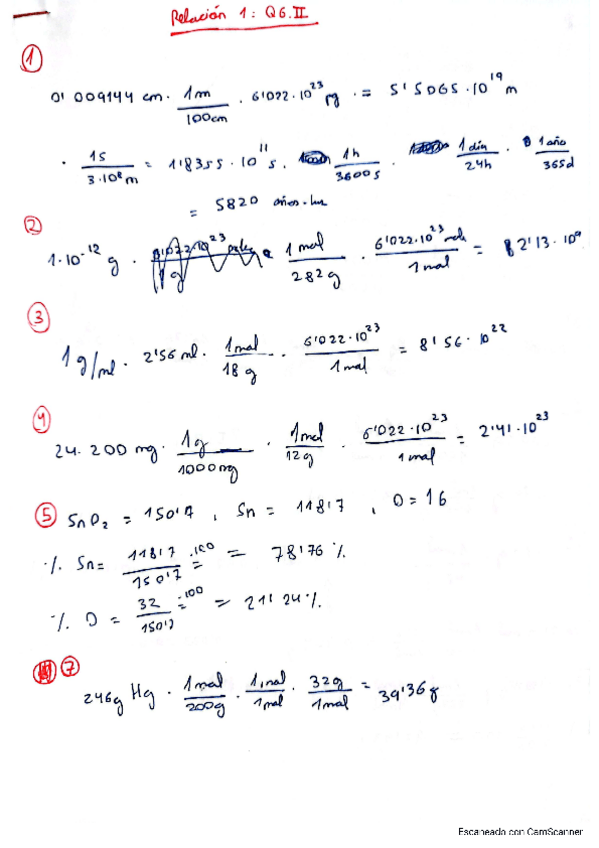 Relación 1: Q6.II
①
0'009144 cm · 1m/100cm · 6'022·10²³ = 5'5065·10¹⁹ m
· 1s/3·10⁸m = 1'8355·10¹¹ s · 1h/3600s · 1día/24h · 1año/365d
= 5820 años-luz
②
1·10⁻¹² g · 1mol/282g · 6'022·10²³/1mol = 2'13·10⁹
③
1g/ml · 2'56 ml · 1mol/18g · 6'022·10²³/1mol = 8'56·10²²
④
24·200 mg · 1g/1000mg · 1mol/12g · 6'022·10²³/1mol = 2'41·10²³
⑤ SnO₂ = 150'7, Sn = 118'7, O = 16
·/. Sn = 118'7/150'7 ·100 = = 78'76 ·/.
·/. O = 32/150'7 ·100 = = 21'24 ·/.
⑦
246g Hg · 1mol/200g · 1mol/1mol · 32g/1mol = 39'36g
Escaneado con CamScanner